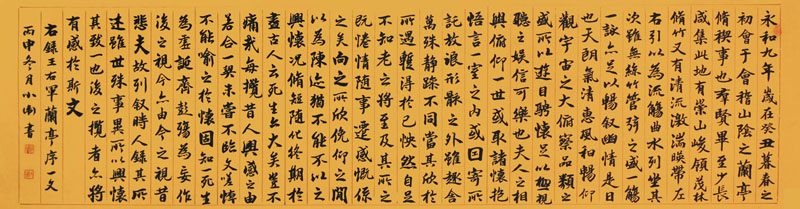 永和九年歲在癸丑暮春之
初會于會稽山陰之蘭亭
脩稧事也羣賢畢至少長
咸集此地有崇山峻領茂林
脩竹又有清流激湍暎帶左
右引以為流觴曲水列坐其
次雖無絲竹管弦之盛一觴
一詠亦足以暢叙幽情是日
也天朗氣清惠風和暢仰
觀宇宙之大俯察品類之
盛所以遊目騁懷足以極視
聽之娛信可樂也夫人之相
與俯仰一世或取諸懷抱
悟言一室之內或因寄所
託放浪形骸之外雖趣舍
萬殊靜躁不同當其欣於
所遇暫得於己怏然自足
不知老之將至及其所之
既惓情隨事遷感慨係
之矣向之所欣俛仰之閒
以為陳迹猶不能不以之
興懷況脩短隨化終期於
盡古人云死生亦大矣豈不
痛哉每攬昔人興感之由
若合一契未嘗不臨文嗟悼
不能喻之於懷固知一死生
為虛誕齊彭殤為妄作
後之視今亦由今之視昔
悲夫故列叙時人錄其所
述雖世殊事異所以興懷
其致一也後之攬者亦將
有感於斯文
右錄王右軍蘭亭序一文
丙申冬月小
書